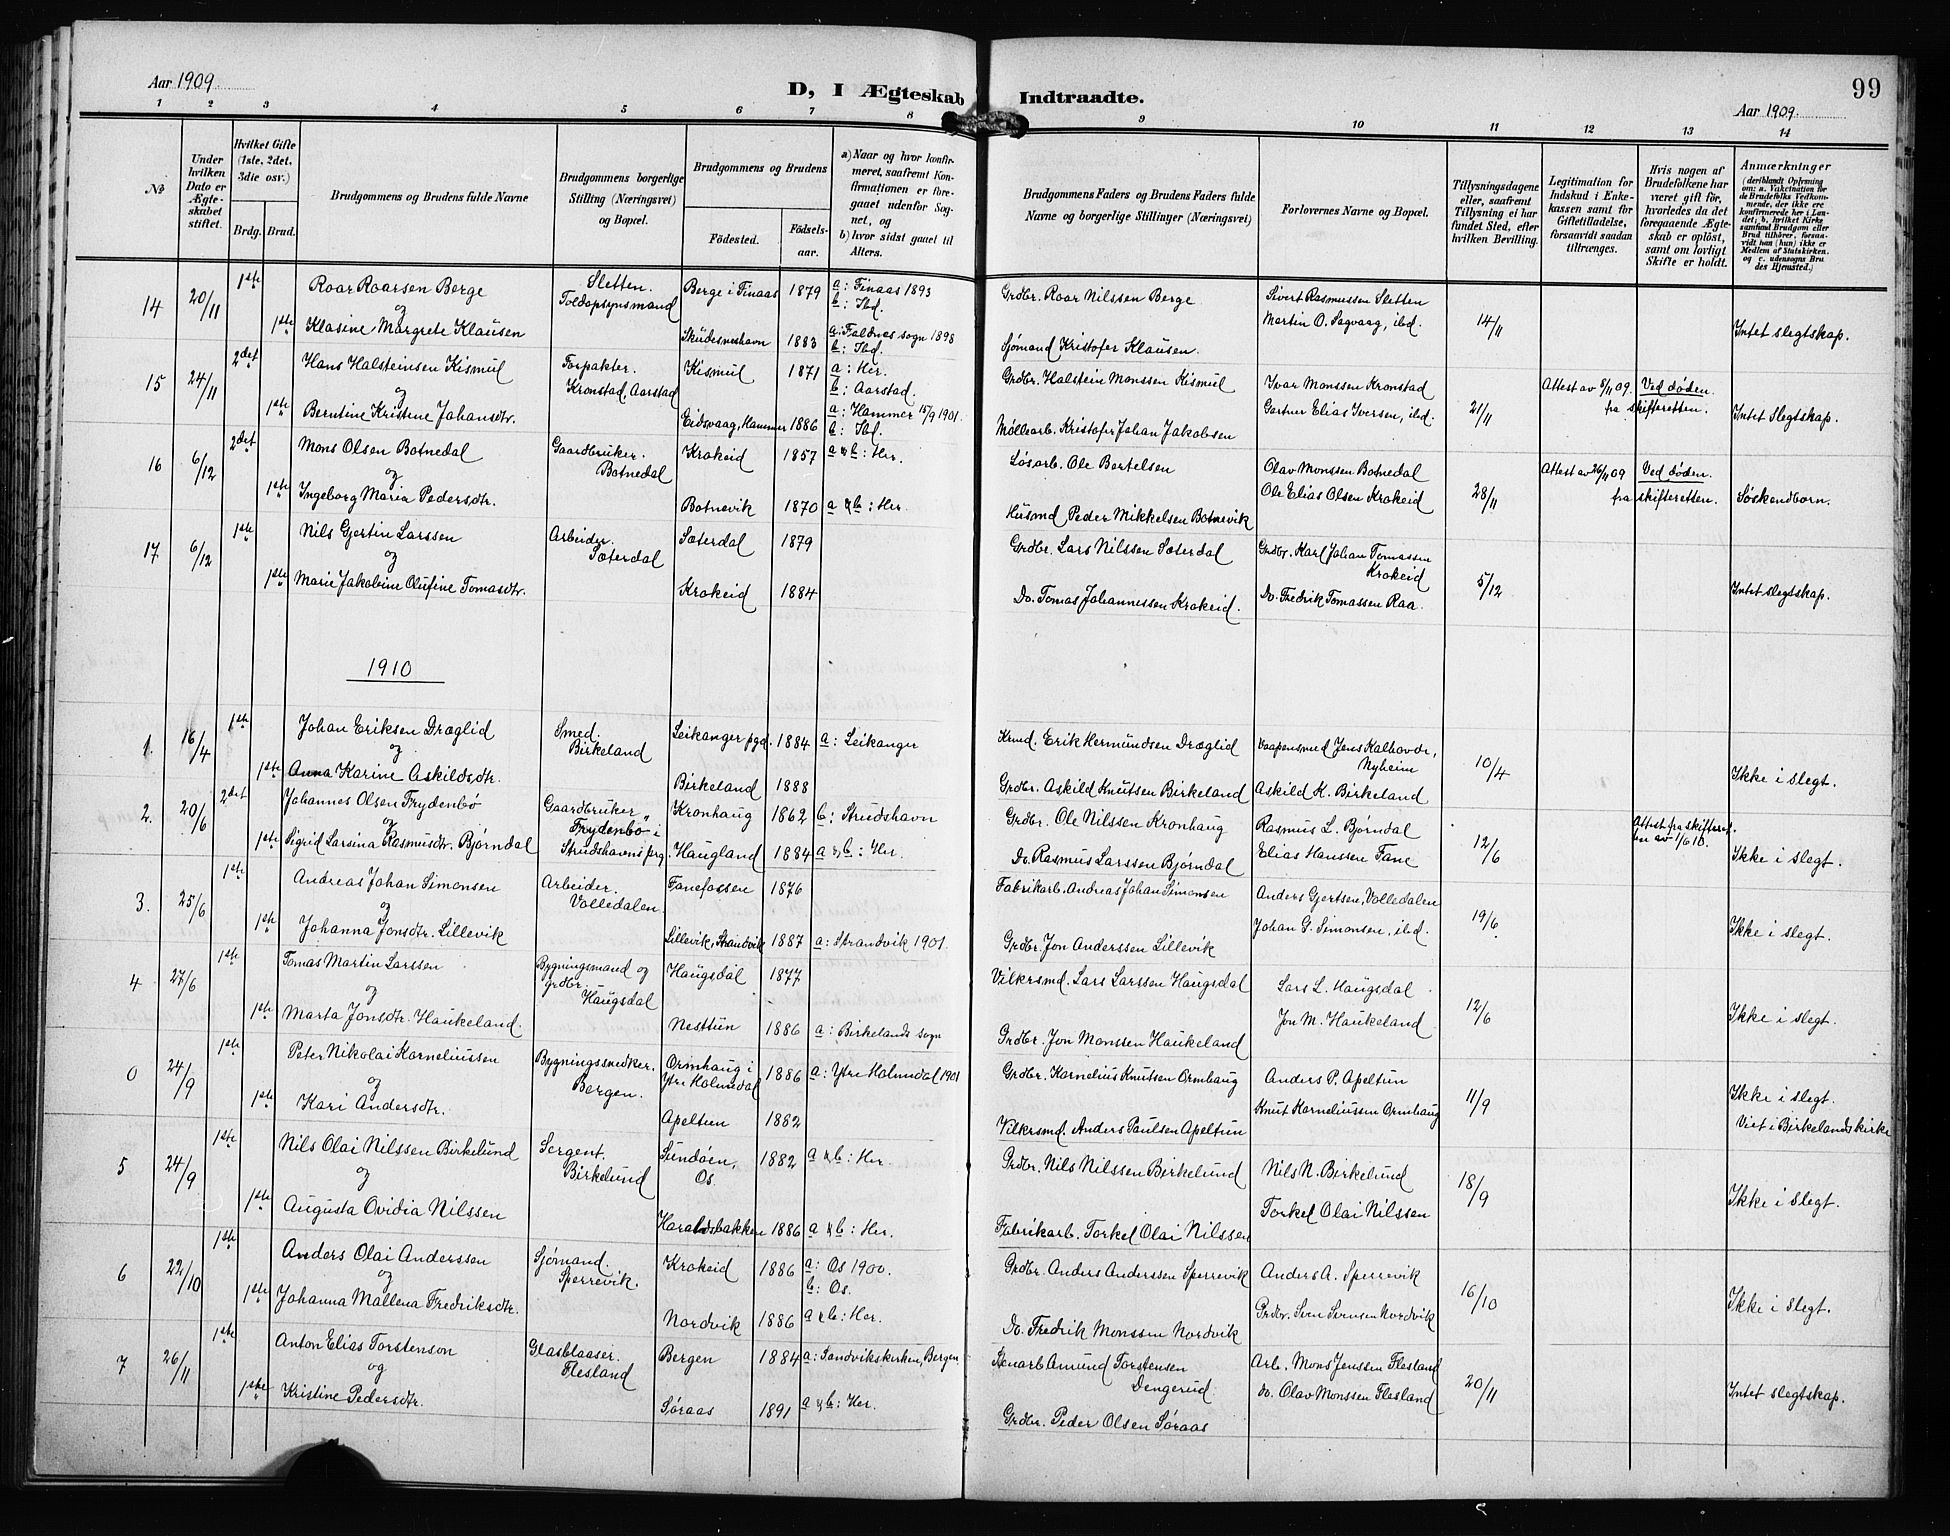 Aar 1909.
D, I Ægteskab Indtraadte.
99
Aar 1909.
1 2 3 4 5 6 7 8 9 10 11 12 13 14
No
Under hvilken Dato er Ægteskabet stiftet.
Hvilket Gifte (1ste, 2det, 3die osv.)
Brdg. Brud.
Brudgommens og Brudens fulde Navne
Brudgommens borgerlige Stilling (Næringsvei) og Bopæl.
Brudgommens og Brudens
Fødested.
Fødselsaar.
a) Naar og hvor konfirmeret, saafremt Konfirmationen er foregaaet udenfor Sognet, og
b) hvor sidst gaaet til Alters.
Brudgommens Faders og Brudens Faders fulde Navne og borgerlige Stillinger (Næringsvei)
Forlovernes Navne og Bopæl.
Tillysningsdagene eller, saafremt Tillysning ei har fundet Sted, efter hvilken Bevilling.
Legitimation for Indskud i Enkekassen samt for Giftetilladelse, forsaavidt saadan tiltrænges.
Hvis nogen af Brudefolkene har været gift før, hvorledes da det foregaaende Ægteskab er opløst, samt om lovligt Skifte er holdt.
Anmærkninger
(deriblandt Oplysning om: a. Vakcination for de Brudefolks Vedkommende, der ikke ere konfirmerede her i Landet; b. hvilket Kirkesamfund Brudgom eller Brud tilhører, forsaavidt han (hun) ikke er Medlem af Statskirken, og c. udensogns Brudes Hjemsted.)
14 20/11 1ste Roar Roarsen Berge Sletten. Toldopsynsmand Berge i Finaas 1879 a: Finaas 1893 b: Ibd. Grdbr. Roar Nilssen Berge Sivert Rasmussen Sletten
og
1ste Klasine Margrete Klausen Skudesneshavn 1883 a: Faldnes sogn 1898 b: Ibd. Sjømand Kristofer Klausen. Martin O. Sagvaag, ibd. 14/11 Intet slegtskap.
15 24/11 2det Hans Halsteinsen Kismul Forpakter. Kronstad, Aarstad Kismul 1871 a: Her. b: Aarstad. Grdbr. Halstein Monssen Kismul Ivar Monssen Kronstad Attest av 8/11 09. fra skifteretten. Ved døden.
og
1ste Berntine Kristine Johansdtr. Eidsvaag, Hammer 1886 a: Hammer 15/9 1901. b: Ibd. Møllearb. Kristofer Johan Jakobsen Gartner Elias Iversen, ibd. 21/11 Intet Slegtskap.
16 6/12 2det Mons Olsen Botnedal Gaardbruker. Botnedal Krokeid 1857 a & b: Her. Løsarb. Ole Bertelsen Olav Monssen Botnedal Attest av 26/11 09 fra skifteretten. Ved døden.
og
1ste Ingeborg Maria Pedersdtr. Botnevik 1870 a & b: Her. Husmd Peder Mikkelsen Botnevik Ole Elias Olsen Krokeid 28/11 Søskendborn.
17. 6/12 1ste Nils Gjertin Larssen Arbeider. Sæterdal Sæterdal 1879 Grdbr. Lars Nilssen Sæterdal Grdbr. Karl Johan Tomassen Krokeid
og
1ste Marie Jakobine Olufine Tomasdtr. Krokeid 1884 Do. Tomas Johannessen Krokeid. Do. Fredrik Tomassen Raa. 5/12 Intet slegtskap.
1910
1. 16/4 1ste Johan Eriksen Dræglid Smed. Birkeland Leikanger pgd. 1884 a: Leikanger Krmd. Erik Hermundsen Dræglid Vaapensmed Jens Kalhovde, Nyheim
og
1ste Anna Karine Askildsdtr. Birkeland 1888 Grdbr. Askild Knutsen Birkeland Askild K. Birkeland 10/4 Ikke i slegt.
2. 20/6 2det Johannes Olsen Frydenbø Gaardbruker, Frydenbø i Strudshavens prg. Kronhaug 1862 b: Strudshavn Grdbr. Ole Nilssen Kronhaug Rasmus L. Bjørndal Attest fra skifteretten av 1/6 10.
og
1ste Sigrid Larsina Rasmusdtr. Bjørndal Haugland 1884 a & b: Her. Do. Rasmus Larssen Bjørndal Elias Hanssen Fane 12/6 Ikke i slegt.
3. 25/6 1ste Andreas Johan Simonsen Arbeider. Volledalen. Fanefossen 1876 Fabrikarb. Andreas Johan Simonsen Anders Gjertsen, Volledalen
og
1ste Johanna Jonsdtr. Lillevik Lillevik, Strandvik 1887 a: Strandvik 1901. Grdbr. Jon Anderssen Lillevik Johan G. Simonsen, ibd. 19/6. Ikke i slegt.
4 27/6 1ste Tomas Martin Larssen Bygningsmand og grdbr. Haugsdal Haugsdal 1877 Vilkrsmd. Lars Larssen Haugsdal Lars L. Haugsdal
og
1ste Marta Jonsdtr. Haukeland. Nesttun 1886 a: Birkelands sogn Grdbr. Jon Monssen Haukeland Jon M. Haukeland 12/6 Ikke i slegt.
0 24/9 1ste Peter Nikolai Korneliussen Bygningssnedker. Bergen. Ormhaug i Ytre Holmedal 1886 a: Ytre Holmedal 1901 Grdbr. Kornelius Knutsen Ormhaug Anders P. Apeltun
og
1ste Kari Andersdtr. Apeltun 1882 Vilkrsmd. Anders Paulsen Apeltun Knut Korneliussen Ormhaug 11/9 Ikke i slegt. Viet i Birkelands kirke
5 24/9 1ste Nils Olai Nilssen Birkelund Sergent. Birkelund Sundøen, Os. 1882 a & b: Her. Grdbr. Nils Nilssen Birkelund Nils N. Birkelund
og
1ste Augusta Ovidia Nilssen Haraldsbakken 1886 a & b: Her. Fabrikarb. Torkel Olai Nilssen Torkel Olai Nilssen 18/9 Ikke i slegt.
6 22/10 1ste Anders Olai Anderssen Sjømand. Sperrevik. Krokeid 1886 a: Os 1900. b: Os. Grdbr. Anders Anderssen Sperrevik Anders A. Sperrevik
og
1ste Johanna Mallena Fredriksdtr. Nordvik 1886 a & b: Her. Do. Fredrik Monssen Nordvik Grdbr. Sven Svensen Nordvik 16/10 Ikke i slegt.
7 26/11 1ste Anton Elias Torstenson Glasblaaser. Flesland Bergen 1884 a: Sandvikskirken, Bergen. Stenarb Amund Torstensen Dengerud. Arb. Mons Jenssen Flesland
og
1ste Kristine Pedersdtr. Søraas 1891 a & b: Her. Grdbr. Peder Olsen Søraas do. Olav Monssen Flesland 20/11 Intet slegtskap.